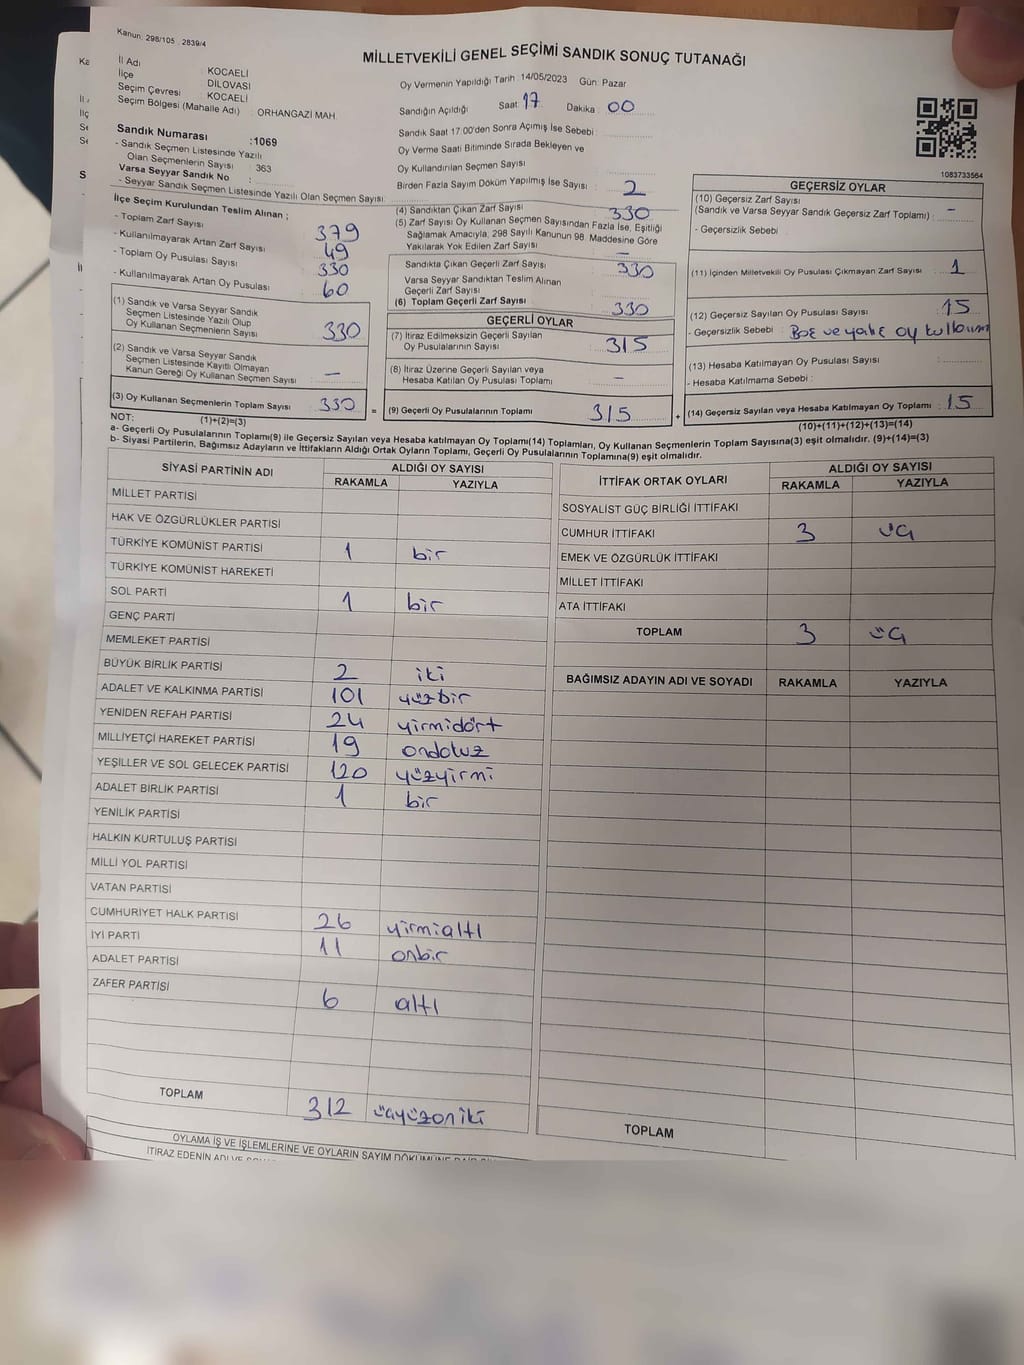 Kanun: 298/105 . 2839/4
MİLLETVEKİLİ GENEL SEÇİMİ SANDIK SONUÇ TUTANAĞI
İl Adı : KOCAELİ
İlçe : DİLOVASI
Seçim Çevresi : KOCAELİ
Seçim Bölgesi (Mahalle Adı) : ORHANGAZİ MAH.
Sandık Numarası :1069
- Sandık Seçmen Listesinde Yazılı
Olan Seçmenlerin Sayısı : 363
Varsa Seyyar Sandık No :
- Seyyar Sandık Seçmen Listesinde Yazılı Olan Seçmen Sayısı:
Oy Vermenin Yapıldığı Tarih :14/05/2023 Gün: Pazar
Sandığın Açıldığı Saat: 17 Dakika : 00
Sandık Saat 17:00'den Sonra Açılmış İse Sebebi :
Oy Verme Saati Bitiminde Sırada Bekleyen ve
Oy Kullandırılan Seçmen Sayısı :
Birden Fazla Sayım Döküm Yapılmış İse Sayısı : 2
1083733564
İlçe Seçim Kurulundan Teslim Alınan ;
- Toplam Zarf Sayısı : 379
- Kullanılmayarak Artan Zarf Sayısı : 49
- Toplam Oy Pusulası Sayısı : 330
- Kullanılmayarak Artan Oy Pusulası : 60
(1) Sandık ve Varsa Seyyar Sandık
Seçmen Listesinde Yazılı Olup
Oy Kullanan Seçmenlerin Sayısı : 330
(2) Sandık ve Varsa Seyyar Sandık
Seçmen Listesinde Kayıtlı Olmayan
Kanun Gereği Oy Kullanan Seçmen Sayısı : —
(3) Oy Kullanan Seçmenlerin Toplam Sayısı : 330 =
(1)+(2)=(3)
(4) Sandıktan Çıkan Zarf Sayısı : 330
(5) Zarf Sayısı Oy Kullanan Seçmen Sayısından Fazla İse, Eşitliği
Sağlamak Amacıyla, 298 Sayılı Kanunun 98. Maddesine Göre
Yakılarak Yok Edilen Zarf Sayısı : —
Sandıkta Çıkan Geçerli Zarf Sayısı : 330
Varsa Seyyar Sandıktan Teslim Alınan
Geçerli Zarf Sayısı :
(6) Toplam Geçerli Zarf Sayısı : 330
GEÇERLİ OYLAR
(7) İtiraz Edilmeksizin Geçerli Sayılan
Oy Pusulalarının Sayısı : 315
(8) İtiraz Üzerine Geçerli Sayılan veya
Hesaba Katılan Oy Pusulası Toplamı : —
(9) Geçerli Oy Pusulalarının Toplamı : 315 +
GEÇERSİZ OYLAR
(10) Geçersiz Zarf Sayısı
(Sandık ve Varsa Seyyar Sandık Geçersiz Zarf Toplamı) : —
- Geçersizlik Sebebi :
(11) İçinden Milletvekili Oy Pusulası Çıkmayan Zarf Sayısı : 1
(12) Geçersiz Sayılan Oy Pusulası Sayısı : 15
- Geçersizlik Sebebi : Boş ve oy
(13) Hesaba Katılmayan Oy Pusulası Sayısı :
- Hesaba Katılmama Sebebi :
(14) Geçersiz Sayılan veya Hesaba Katılmayan Oy Toplamı : 15
(10)+(11)+(12)+(13)=(14)
NOT:
a- Geçerli Oy Pusulalarının Toplamı(9) ile Geçersiz Sayılan veya Hesaba katılmayan Oy Toplamı(14) Toplamları, Oy Kullanan Seçmenlerin Toplam Sayısına(3) eşit olmalıdır. (9)+(14)=(3)
b- Siyasi Partilerin, Bağımsız Adayların ve İttifakların Aldığı Oyların Toplamı, Geçerli Oy Pusulalarının Toplamına(9) eşit olmalıdır.
SİYASİ PARTİNİN ADI ALDIĞI OY SAYISI
RAKAMLA YAZIYLA
MİLLET PARTİSİ
HAK VE ÖZGÜRLÜKLER PARTİSİ
TÜRKİYE KOMÜNİST PARTİSİ 1 bir
TÜRKİYE KOMÜNİST HAREKETİ
SOL PARTİ 1 bir
GENÇ PARTİ
MEMLEKET PARTİSİ
BÜYÜK BİRLİK PARTİSİ 2 iki
ADALET VE KALKINMA PARTİSİ 101 yüzbir
YENİDEN REFAH PARTİSİ 24 yirmidört
MİLLİYETÇİ HAREKET PARTİSİ 19 ondokuz
YEŞİLLER VE SOL GELECEK PARTİSİ 120 yüzyirmi
ADALET BİRLİK PARTİSİ 1 bir
YENİLİK PARTİSİ
HALKIN KURTULUŞ PARTİSİ
MİLLİ YOL PARTİSİ
VATAN PARTİSİ
CUMHURİYET HALK PARTİSİ 26 yirmialtı
İYİ PARTİ 11 onbir
ADALET PARTİSİ
ZAFER PARTİSİ 6 altı
TOPLAM 312 üçyüzoniki
İTTİFAK ORTAK OYLARI ALDIĞI OY SAYISI
RAKAMLA YAZIYLA
SOSYALİST GÜÇ BİRLİĞİ İTTİFAKI
CUMHUR İTTİFAKI 3 üç
EMEK VE ÖZGÜRLÜK İTTİFAKI
MİLLET İTTİFAKI
ATA İTTİFAKI
TOPLAM 3 üç
BAĞIMSIZ ADAYIN ADI VE SOYADI RAKAMLA YAZIYLA
TOPLAM